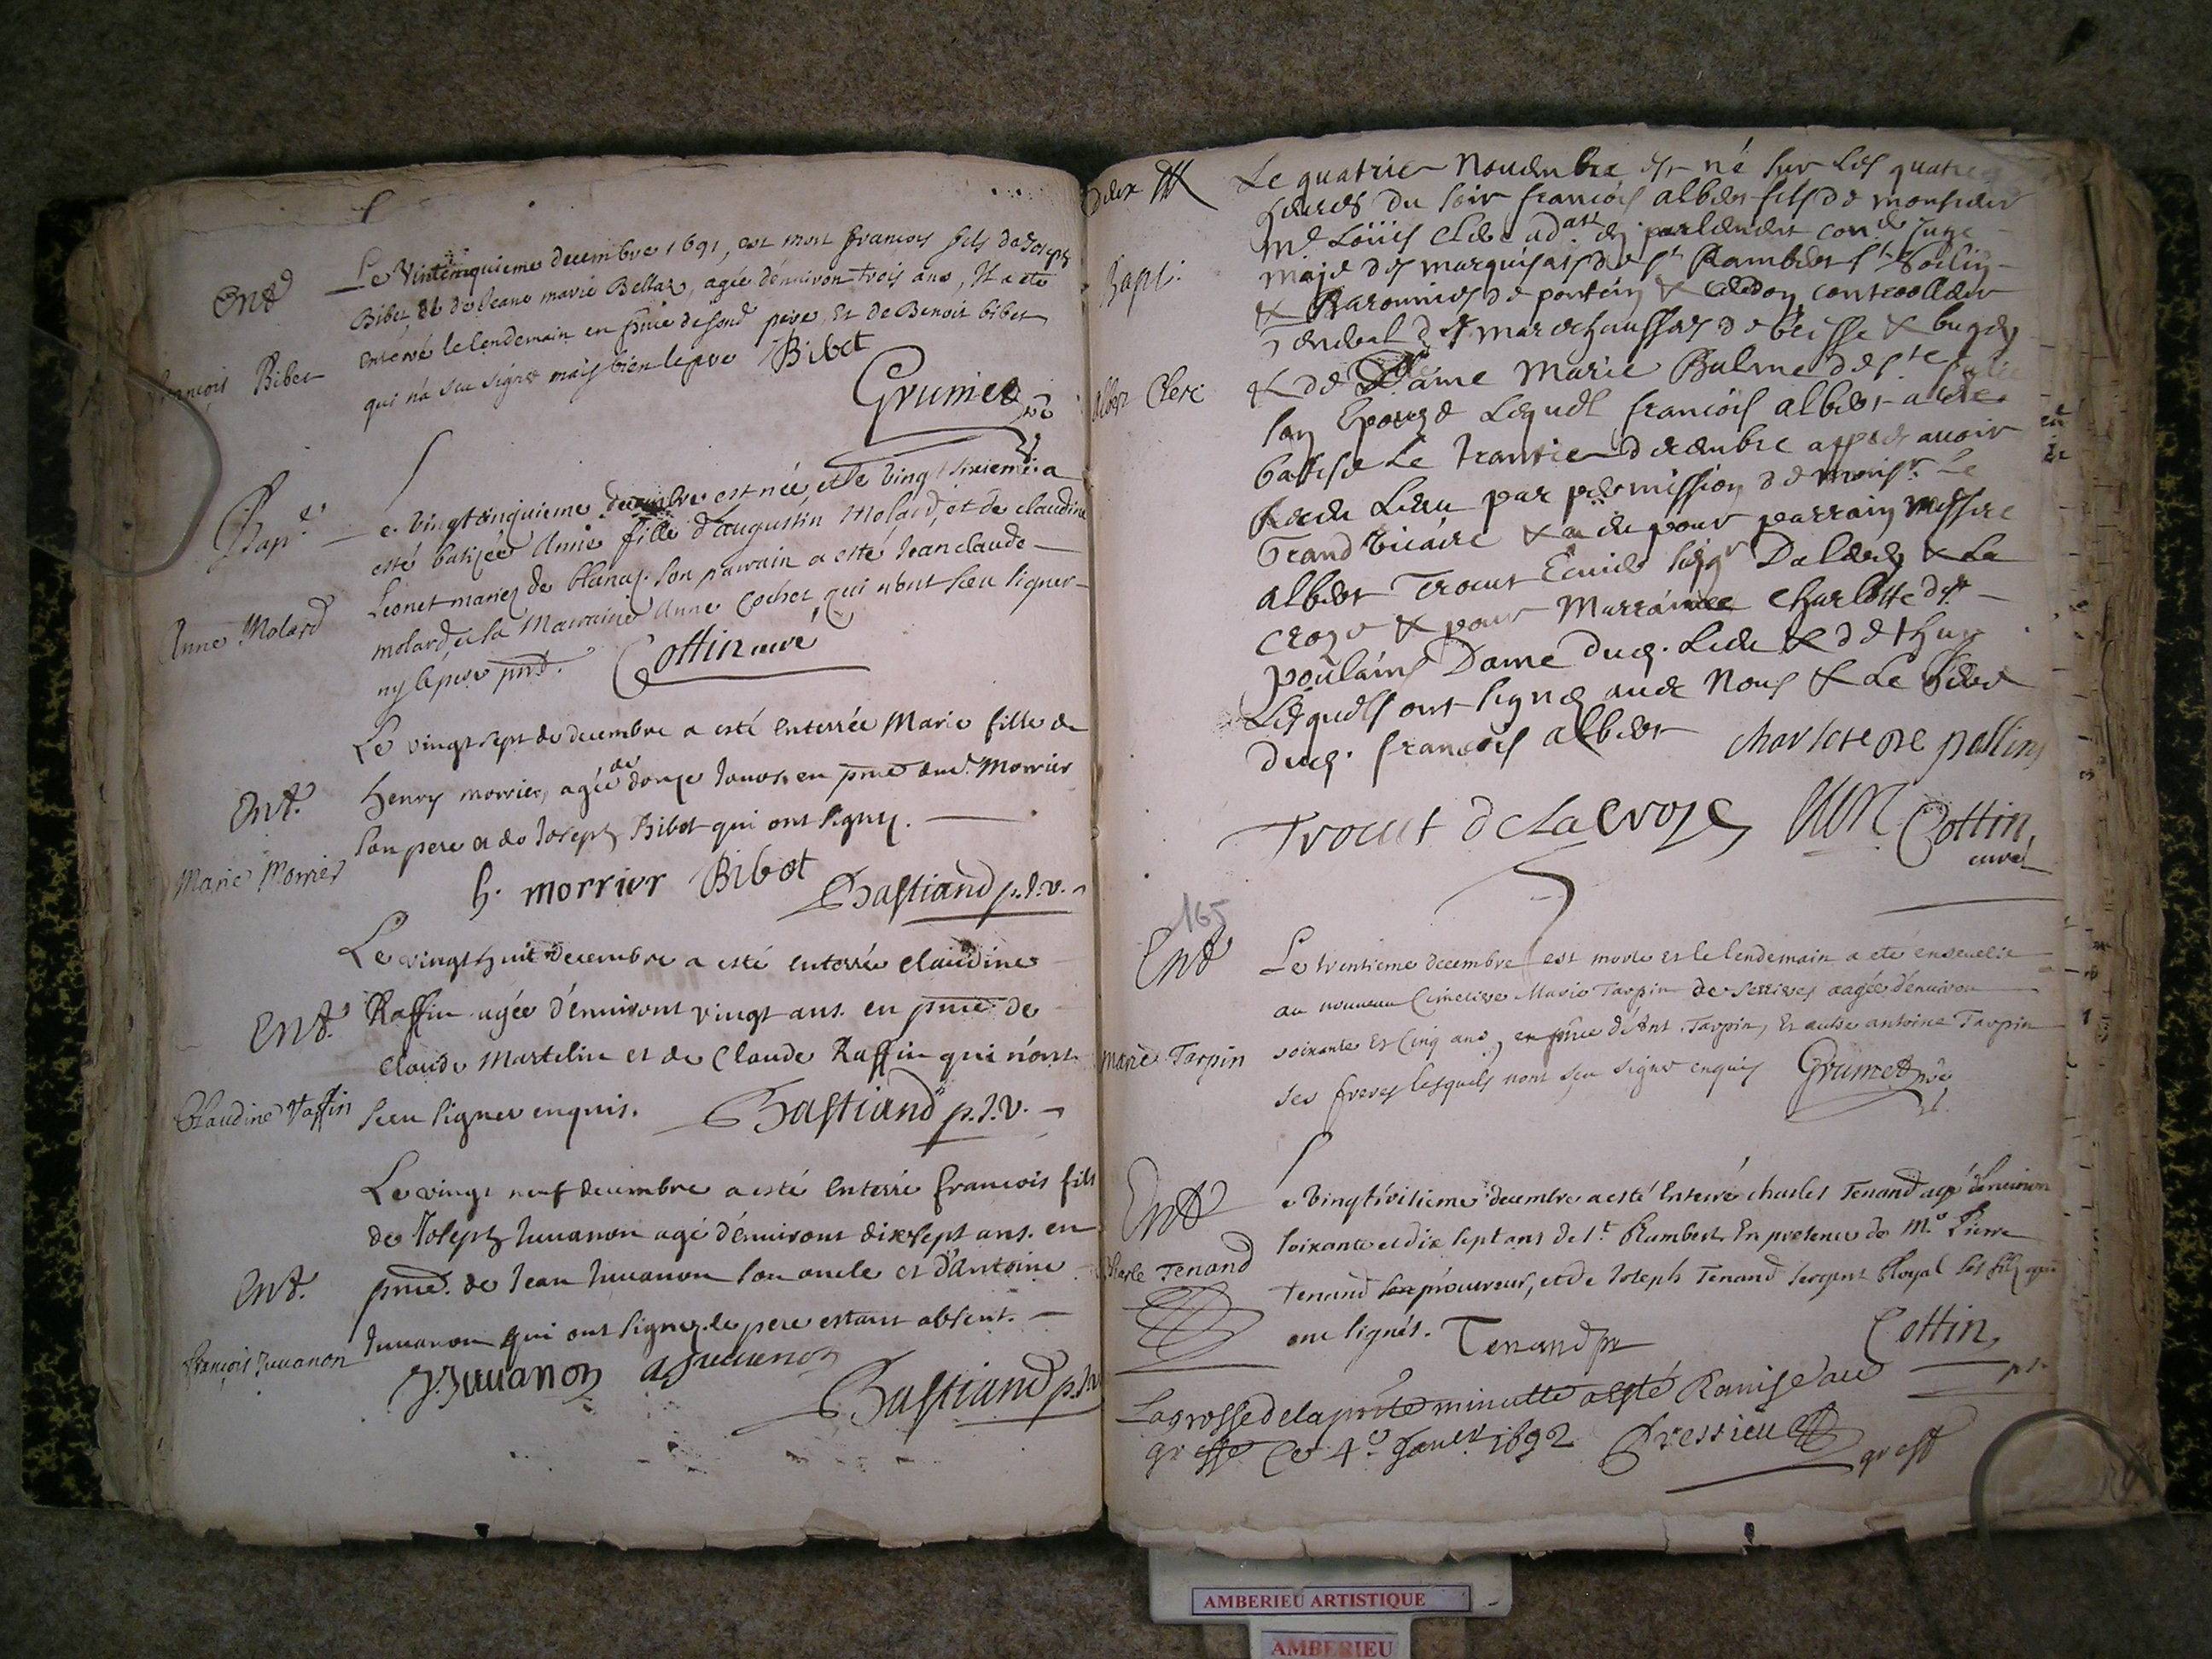 Ent.
Le Vintcinquieme decembre 1691, est mort francois fils de Joseph
Bibet et de Jeane marie Bellaz, agée d'enuiron trois ans, Il a eté
enterré le lendemain en pnce de sond pere Et de Benoit bibet
françois Bibet
qui n'a sceu signer mais bien le pere Bibet
Grumet
Bap.
e. Vingtcinquieme decembre est née, et le vingt sixieme a
esté batizée Anne fille d'augustin Molard, et de claudine
Leonet mariez de blanaz. son parrain a esté Jean claude
Anne Molard
molard, et la Marraine Anne Cochet qui n'ont sceu signer
ny le pere pnt. Cottin curé
Le vingt sept de decembre a esté enterrée Marie fille de
Ent.
henry morrier, agée de douze jours, en pnce dud. Morrier
son pere et de Joseph Bibet qui ont signez.
Marie Morrier
h. morrier Bibet Bastiand p.s.v.
Le vingt huit decembre a esté enterrée claudine
Ent.
Raffin agée d'enuiront vingt ans. en pnce de
Claude Martelin et de Claude Raffin qui n'ont
Claudine Raffin
sceu signer enquis. Bastiand p.s.v.
Le vingt neuf decembre a esté enterré francois fils
de Joseph Juuanon agé d'enuiront dix sept ans. en
Ent.
pnce. de Jean Juuanon son oncle et d'Antoine
Juuanon qui ont signez. le pere estant absent.
françois Juuanon
J. Juuanon a Juuenon
Bastiand p.s.v
Le quatrie Nouembre est né sur les quatre
heures du soir francois albert fils de monsieur
Me Loüis Clerc adat. en parlement con de Juge
Bapt.
maje des marquisats de st Rambert st Sorlin
& Baronnies de poncin & Cerdon controolleur
general des marechaussées de bresse & bugey
& de Dame Marie Balme de ste
alber Clerc
son Epouze Lequel francois albert a ete
batisé Le trantie decembre appres auoir
par permission de monsr. Le
Grand Vicaire & a eu pour parrain Messire
albert Trocut Ecuier seigr & La
Croze & pour Marraine Charlotte des
poulains Dame dud. Lieu &
Lesquels ont signe auec Nous & Le
dud. francois albert charlote de
Trocut de La Croze Cottin
curé
165
Ent
Le trentieme decembre est morte et le lendemain a ete enseuelie
au nouueau Cimetiere Marie Tarpin de aagée d'enuiron
Marie Tarpin
soixante Et Cinq ans, en pnce de Ant. Tarpin, Et autre antoine Tarpin
ses freres lesquels n'ont sçu signer enquis Grumet
Ent
e Vingt decembre a esté Enterré charles Tenand agé d'enuiron
soixante et dix sept ans de st. Rambert En presence de Me. Pierre
Charle Tenand
Tenand procureur, et de Joseph Tenand sergent Royal ses fils qui
ont signés. Tenand pr Cottin
La grosse de la pnte minutte a esté Remise au
greffe Ce 4e Januer 1692 Dressieu greff
AMBERIEU ARTISTIQUE
AMBERIEU